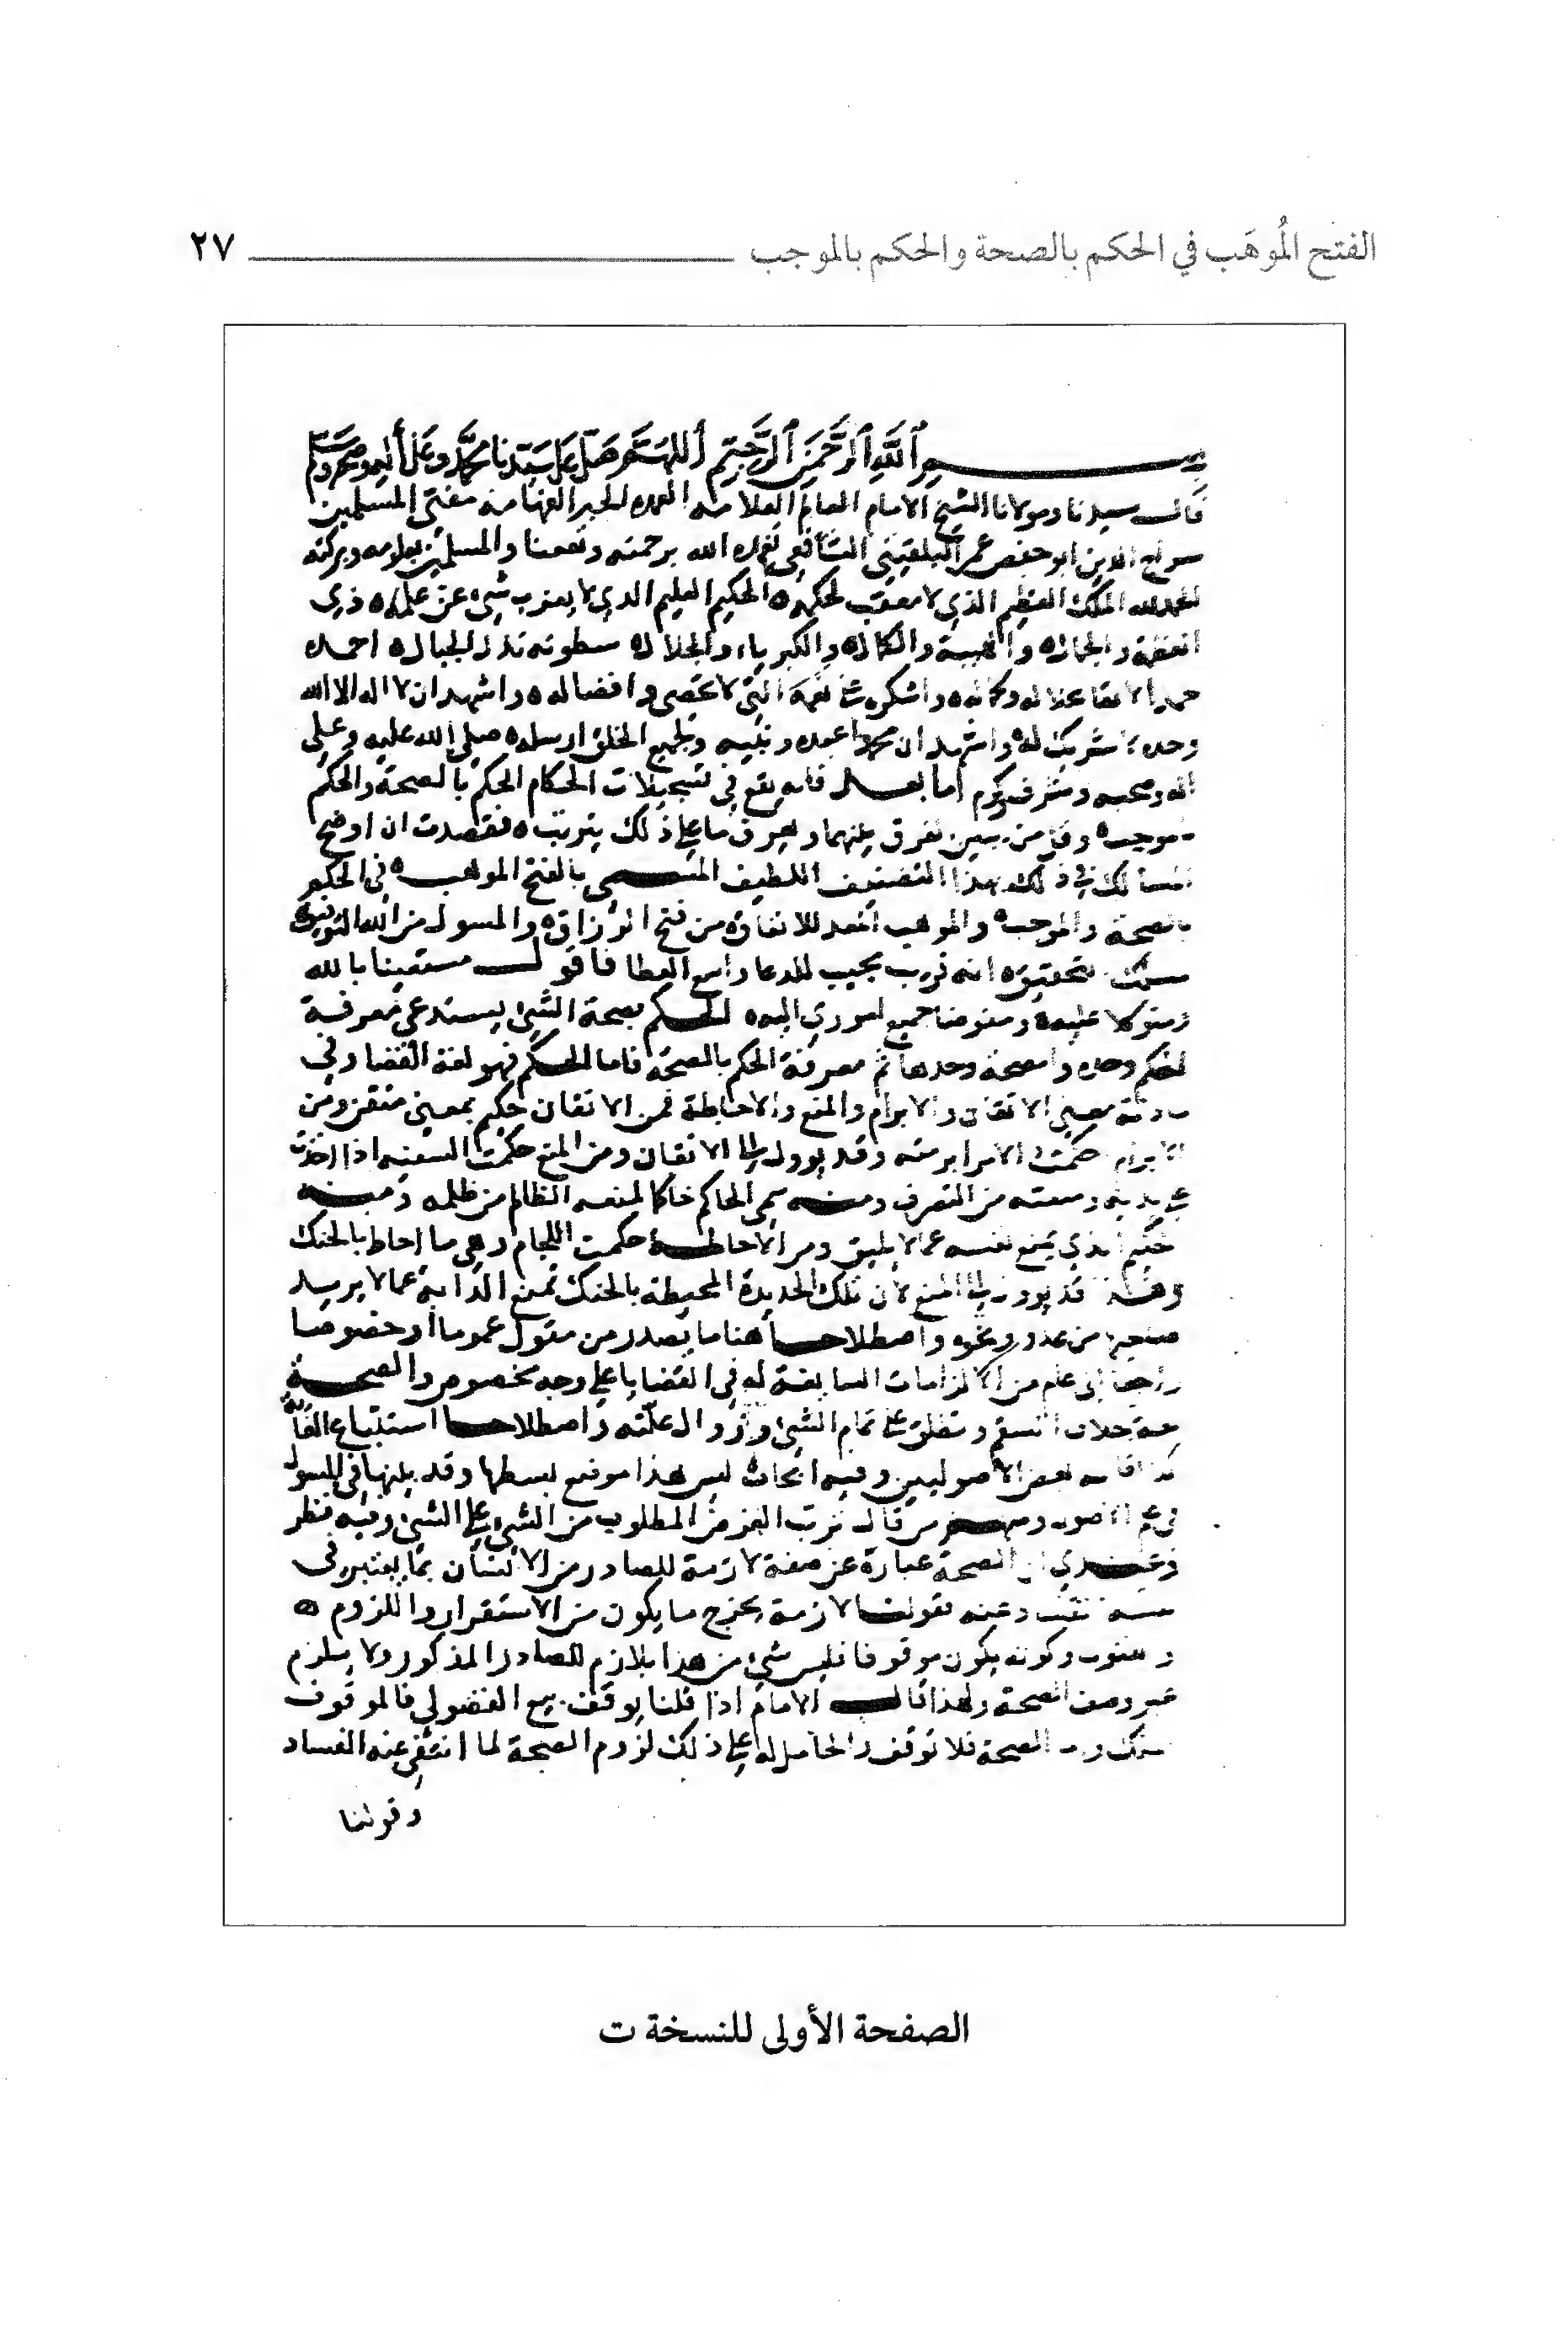 الفتح المُوهَب في الحكم بالصحة والحكم بالموجب ٢٧
بسم الله الرحمن الرحيم اللهم صل على سيدنا محمد وعلى آله وصحبه وسلم
قال سيدنا ومولانا الشيخ الامام العالم العلامه العمده الحبر الفهامه مفتي المسلمين
سراج الدين ابو حفص عمر البلقيني الشافعي تغمده الله برحمته ونفعنا والمسلمين بعلومه وبركته
الحمد لله الملك العظيم الذي لا معقب لحكمه الحكيم العليم الذي لا يعزب شيء عن علمه ذي
العظمة والجلال والهيبة والكمال والكبرياء والجلال سطوته تذل الجبال احمده
حمدا لا نفا واشكره على نعمه التي لا تحصى وافضاله واشهد ان لا اله الا الله
وحده لا شريك له واشهد ان محمدا عبده ونبيه ولجميع الخلق ارسله صلى الله عليه وعلى
اله وصحبه وشرف وكرم اما بعد فانه يقع في تسجيلات الحكام الحكم بالصحة والحكم
بالموجب وقل من يبين الفرق بينهما ويعرف ما على ذلك يترتب فقصدت ان اوضح
المسالك في ذلك بهذا التصنيف اللطيف المسمى بالفتح الموهب في الحكم
بالصحة والموجب والموهب المعد للانفاق من فتح الرزاق والمسول من الله التوفيق
لسلوك تحقيقه انه قريب مجيب للدعا واسع العطا فاقول مستعينا بالله
ومتوكلا عليه ومفوضا جميع اموري اليه الحكم بصحة الشيء يستدعي معرفة
الحكم وحده والصحة وحدها ثم معرفة الحكم بالصحة فاما الحكم فهو لغة القضا وفي
مادته معنى الاتقان والابرام والمنع والاحاطة فمن الاتقان حكيم بمعنى متقن ومن
الابرام حكمت الامر ابرمته وقد يوول الى الاتقان ومن المنع حكمت السفيه اذا اخذت
على يديه ومنعته من التصرف ومنه سمي الحاكم حاكما لمنعه الظالم من ظلمه ومنه
حكيم الذي يمنع نفسه عما لا يليق ومن الاحاطة حكمت اللجام وهي ما احاط بالحنك
وهذا قد يوول الى المنع لان تلك الحديدة المحيطة بالحنك تمنع الدابة عما لا يريد
صاحبها من عدو ونحوه واصطلاحا هنا ما يصدر من متول عموما او خصوصا
راجعا الى عام من الالزامات السابقة له في القضايا على وجه مخصوص والصحة
لغة خلاف السقم وتطلق على تمام الشيء وزوال علته واصطلاحا استتباع الغاية
كذا قاله بعض الاصوليين وفيه ابحاث ليس هذا موضع بسطها وقد بينتها في المسول
في علم الاصول ومنهم من قال ترتب الغرض المطلوب من الشيء على الشيء وفيه نظر
وعندي ان الصحة عبارة عن صفة لازمة للصادر من الانسان بما يعتبر في
وعينه فقولنا لازمة يخرج ما يكون من الاستقرار واللزوم
وكونه يكون موقوفا فليس شيء من هذا بلازم للصادر المذكور ولا يلزم
غير وصف الصحة ولهذا قال الامام اذا قلنا يوقف بيع الفضولي فالموقوف
الصحة فلا توقف والحامل له على ذلك لزوم الصحة لما انتفى عنه الفساد
وقولنا
الصفحة الأولى للنسخة ت